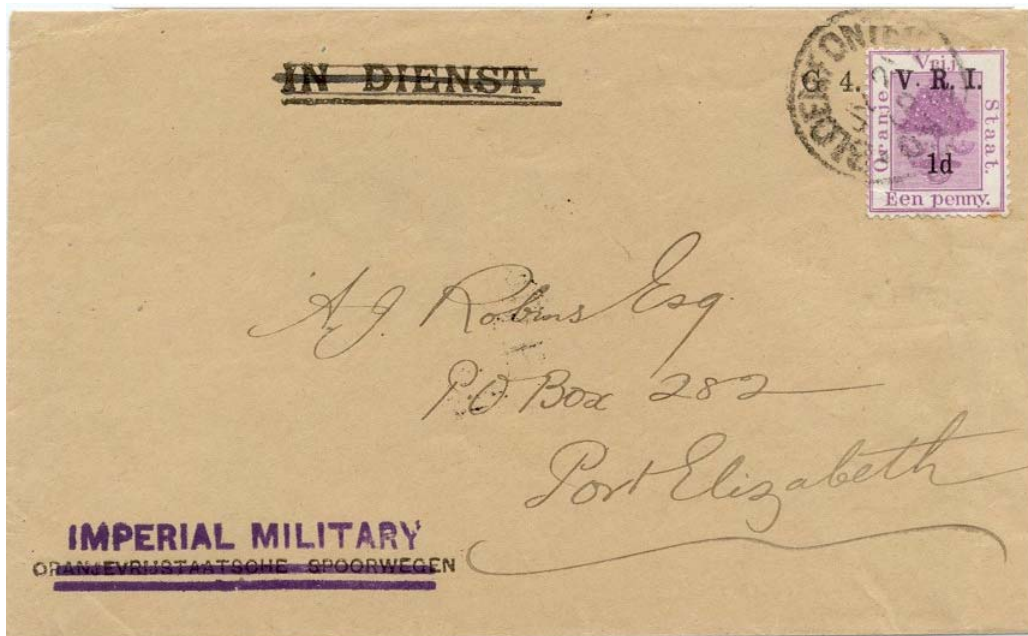 IN DIENST.
BLOEMFONTEIN
G 4. V. R. I.
Vrij
Oranje
Staat.
1d
Een penny.
A.J. Robins Esq.
P.O Box 282
Port Elizabeth
IMPERIAL MILITARY
ORANJEVRIJSTAATSCHE SPOORWEGEN